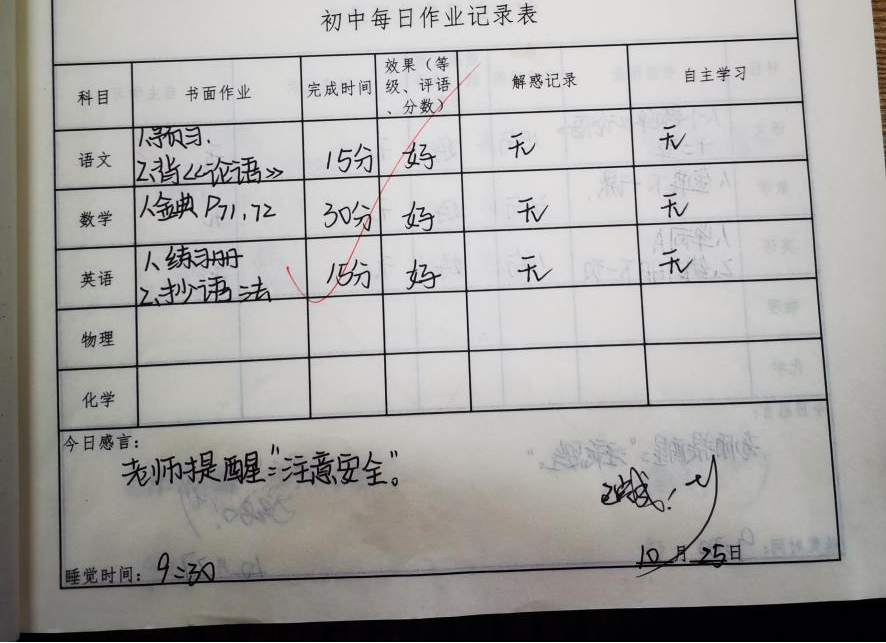 初中每日作业记录表
科目 书面作业 完成时间 效果（等级、评语、分数） 解惑记录 自主学习
语文 1.预习. 15分 好 无 无
2.背《论语》
数学 1.金典 P71,72 30分 好 无 无
英语 1.练习册 15分 好 无 无
2.抄语法
物理
化学
今日感言：
老师提醒：“注意安全”。
10月25日
睡觉时间：9:30